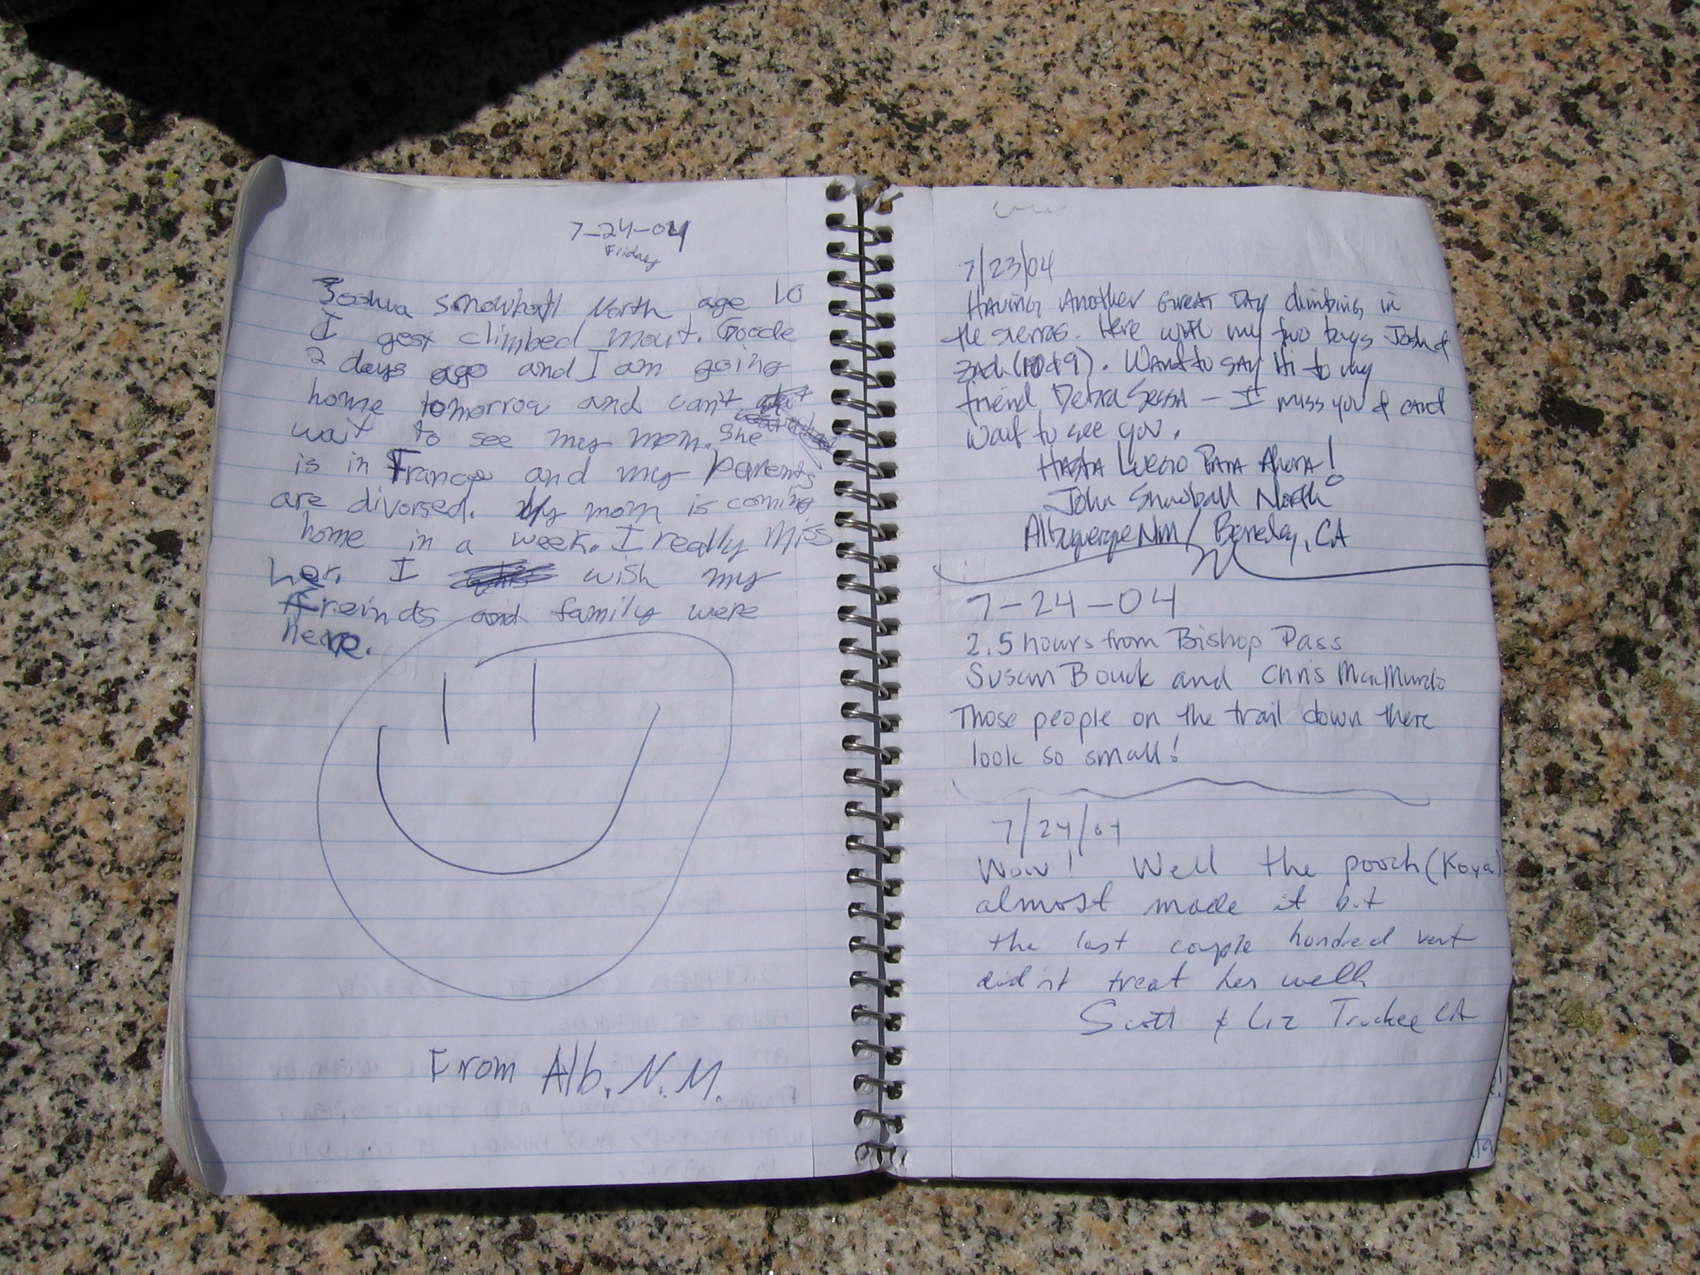 7-24-04
Friday
Joshua Snowball North age 10
I gest climbed mout. Goode
2 days ago and I am going
home tomorrow and can't
wait to see my mom. She
is in France and my parents
are divorsed. My mom is coming
home in a week. I really miss
her. I wish my
freinds and family were
here.
From Alb. N.M.
7/23/04
Having Another Great Day climbing in
the sierras. Here with my two boys Josh &
Zach (10 & 9). Want to say Hi to my
friend Debra Sessa - I miss you & cant
wait to see you.
Hasta Luego Para Ahora!
John Snowball North
Albuquerque NM / Berkeley, CA
7-24-04
2.5 hours from Bishop Pass
Susan Bouck and Chris MacMurdo
Those people on the trail down there
look so small!
7/24/04
Wow! Well the pooch (Koya)
almost made it but
the last couple hundred vert
didn't treat her well
Scott & Liz Truckee CA